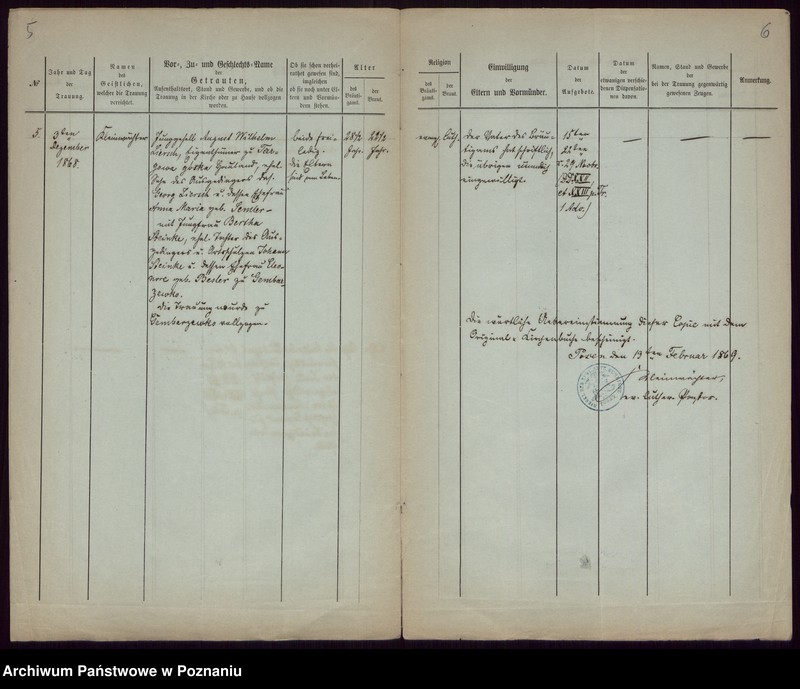 5
6
№
Jahr und Tag
der
Trauung.
Namen
des
Geistlichen,
welcher die Trauung
verrichtet.
Vor-, Zu- und Geschlechts-Name
der
Getrauten,
Aufenthaltsort, Stand und Gewerbe, und ob die
Trauung in der Kirche oder zu Hause vollzogen
worden.
Ob sie schon verhei-
rathet gewesen sind,
imgleichen
ob sie noch unter El-
tern und Vormün-
dern stehen.
Alter
des
Bräuti-
gams.
der
Braut.
Religion
des
Bräuti-
gams.
der
Braut.
Einwilligung
der
Eltern und Vormünder.
Datum
der
Aufgebote.
Datum
der
etwanigen verschie-
denen Dispensatio-
nen davon.
Namen, Stand und Gewerbe
der
bei der Trauung gegenwärtig
gewesenen Zeugen.
Anmerkung.
5.
9ten
Dezember
1868.
Kleinwächter
Junggesell August Wilhelm
Liersch, Eigenthümer zu
Hauland, ehel.
Sohn des Ausgedingers das.
Georg Liersch u. dessen Ehefrau
Anna Maria geb. Semler
mit Jungfrau Bertha
Steinke, ehel. Tochter des Aus-
gedingers u. Ortsschulzen Johann
Steinke u. dessen Ehefrau Eleo-
nore geb. Beeler zu
Die Trauung wurde zu
vollzogen.
beide
ledig.
Die Eltern
sind am Leben.
28½
Jahr.
evang. luth.
der Vater des Bräu-
tigams hat schriftlich,
die übrigen mündlich
eingewilligt.
15ten
22ten
u. 29 Novbr.
et XXIII p. Tr.
1 Adv.)
Die wörtliche Uebereinstimmung dieser Copie mit dem
Original-Kirchenbuche bescheinigt.
Posen den 13ten Februar 1869.
Kleinwächter,
ev. luther. Pastor.
Archiwum Państwowe w Poznaniu